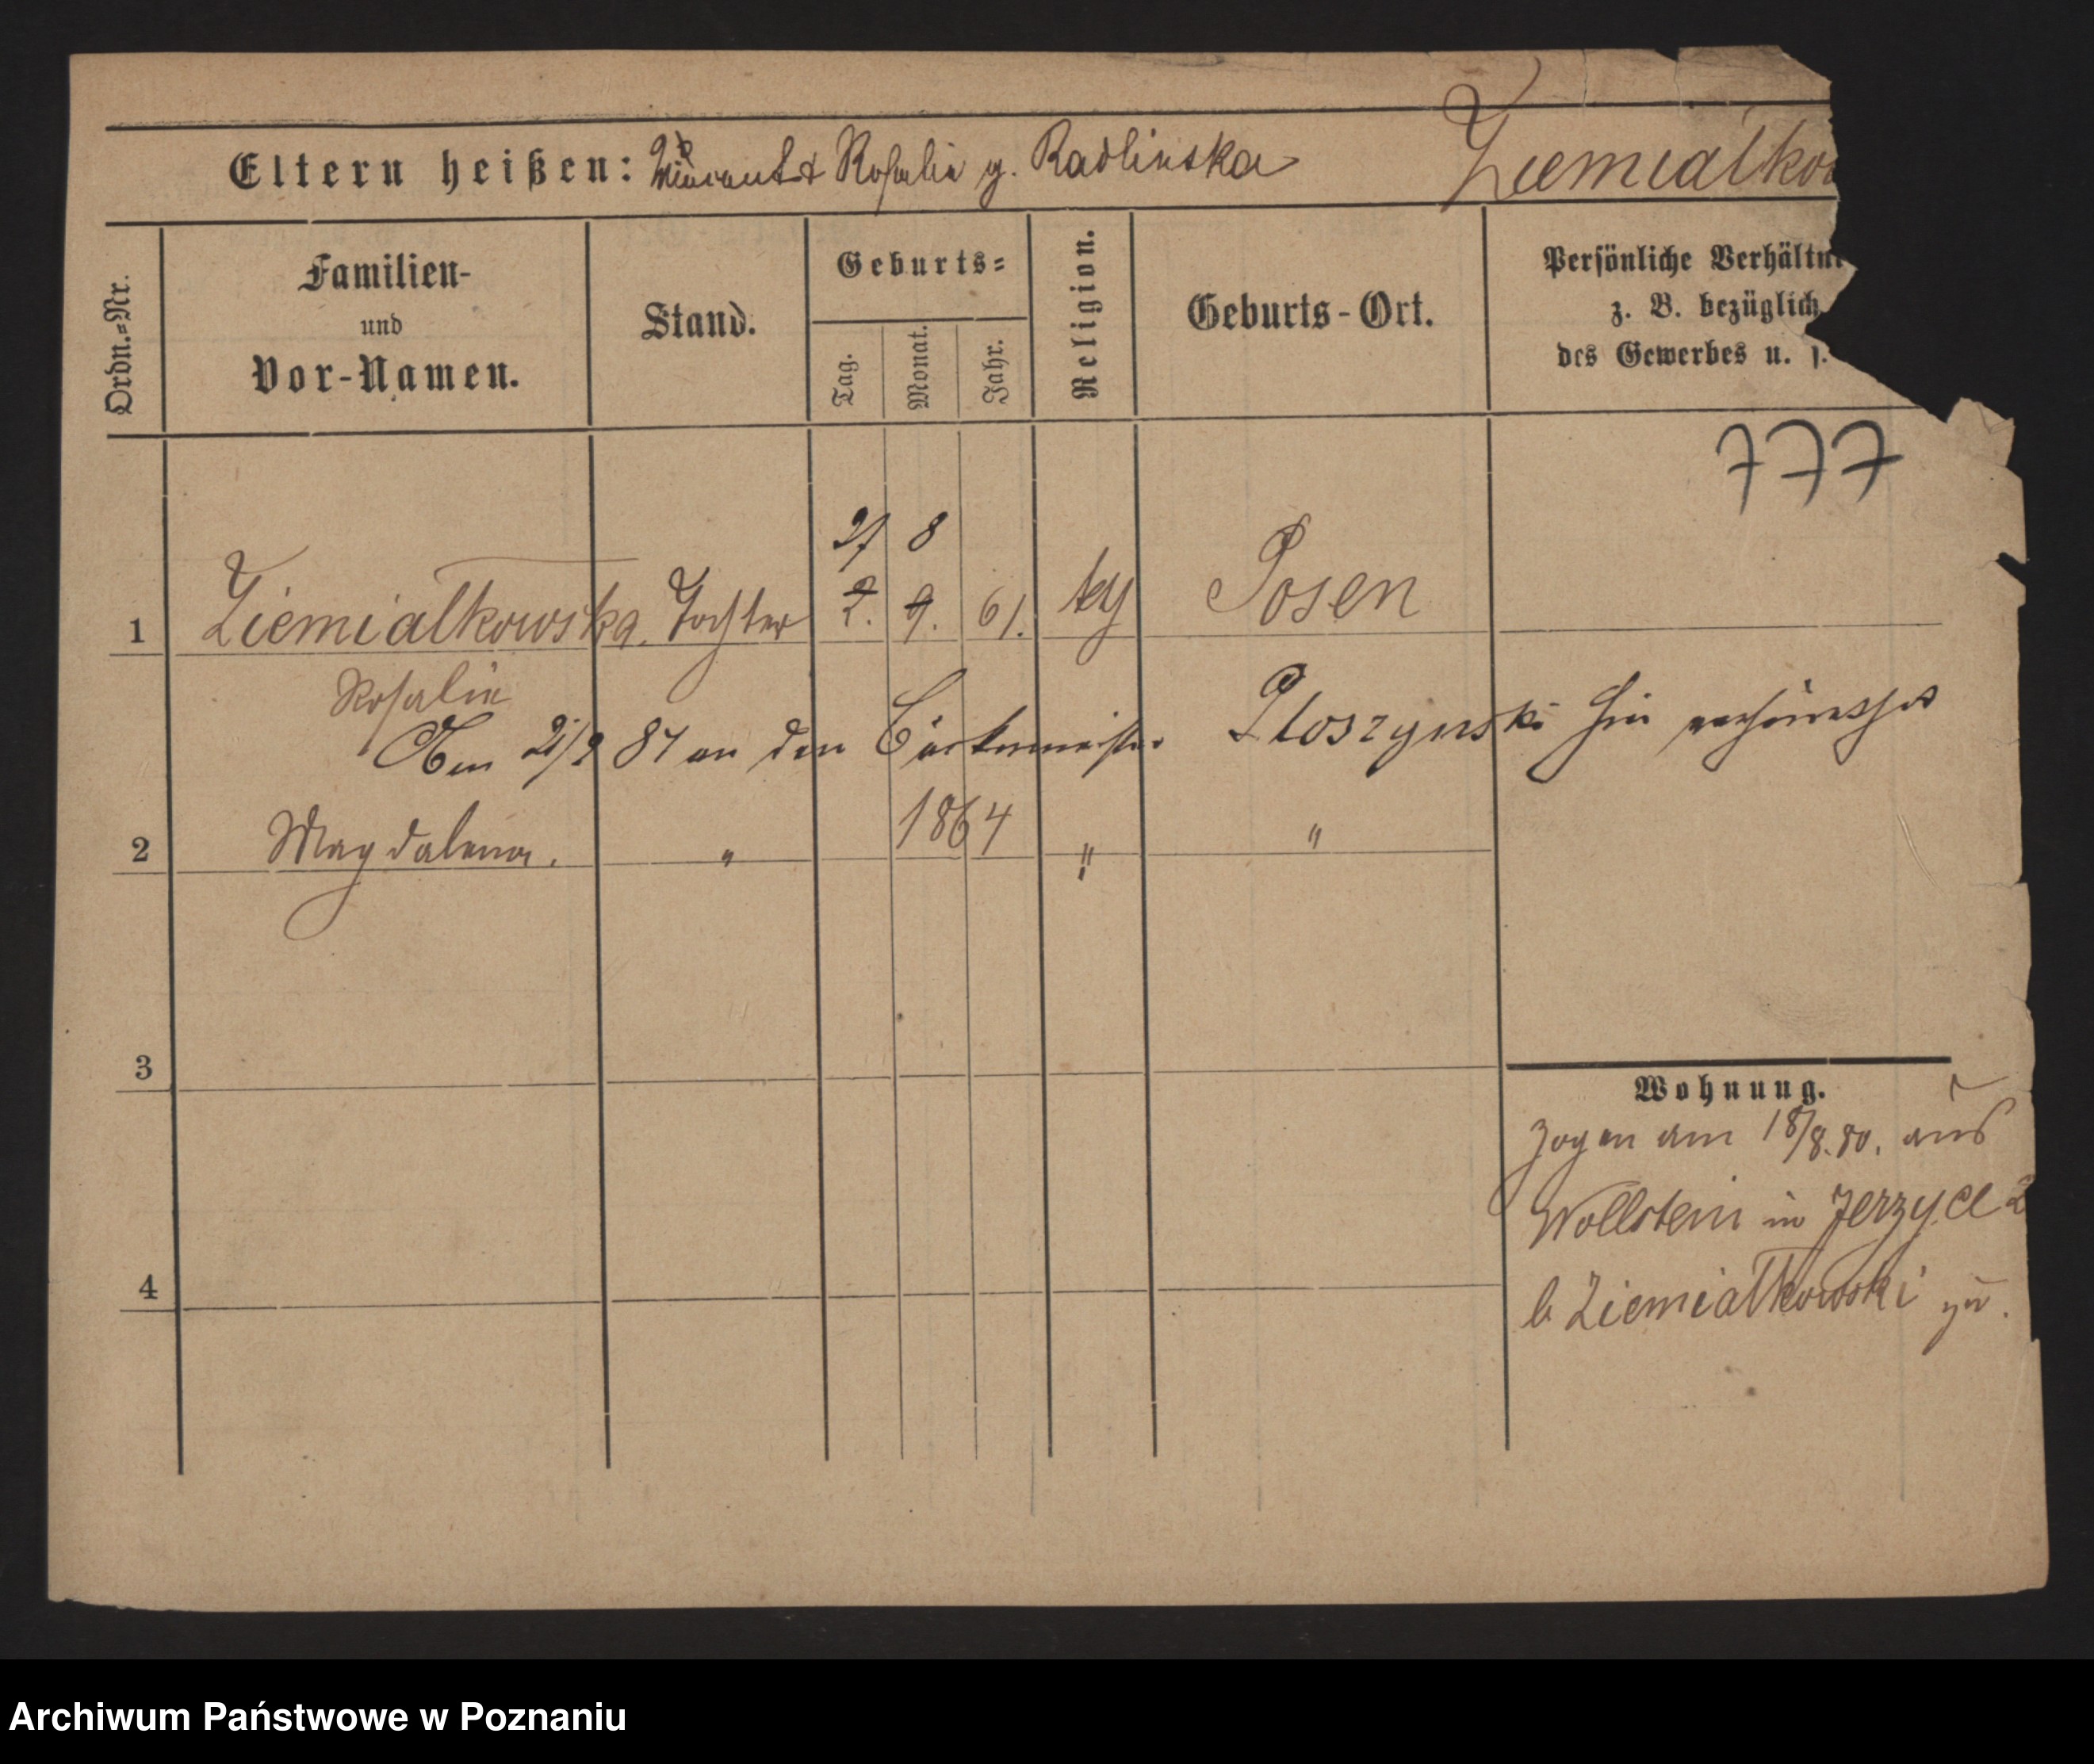 Eltern heißen: Vincent & Rosalie g. Radlinska Ziemialkow
Ordn.=Nr.
Familien-
und
Vor-Namen.
Stand.
Geburts=
Tag.
Monat.
Jahr.
Religion.
Geburts-Ort.
Persönliche Verhältn
z. B. bezüglich
des Gewerbes u. s.
777
27 8
1 Ziemialkowska. Tochter 2. 9. 61. kth Posen
Rosalie
Am 21/9 87 an den Bäckermeister Ploszynski hier verheirathet
2 Magdalena. " 1864 " "
3
Wohnung.
Zogen am 18/8. 80. aus
Wollstein in Jerzyce 2
4
b Ziemialkowski zu.
Archiwum Państwowe w Poznaniu